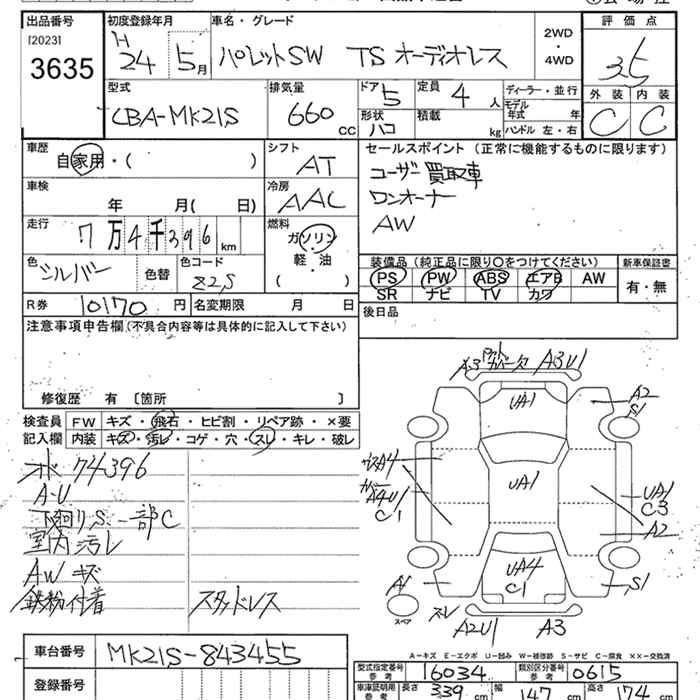 出品番号 初度登録年月 車名・グレード 評価点
[2023] H 2WD
3635 24 5月 パレットSW TS オーディオレス ・ 3.5
4WD
型式 排気量 ドア 定員 ディーラー・並行 外装 内装
5 4人 モデル
CBA-MK21S 660 年式 年 C C
形状 積載
CC ハコ kg ハンドル 左・右
車歴 シフト セールスポイント（正常に機能するものに限ります）
自家用・（ ） AT ユーザー買取車
車検 冷房 ワンオーナー
年 月（ 日） AAC AW
走行 燃料
7万4千396km ガソリン
軽・油 装備品（純正品に限り○をつけてください） 新車保証書
色 色替 色コード （ ） PS PW ABS エアB AW 有・無
シルバー Z2S SR ナビ TV カワ
R券 10170円 名変期限 月 日 後日品
注意事項申告欄（不具合内容等は具体的に記入して下さい）
修復歴 有 〔箇所 〕
検査員 FW キズ・飛石・ヒビ割・リペア跡・×要
記入欄 内装 キズ・汚レ・コゲ・穴・スレ・キレ・破レ
A3 A3U1
UA1 A2
S1
A4
UA1 UA1
A4U1 C3
C1 A2
UA4
A1 C1 S1
スペア スレ
A2U1 A3
74396
A-U
下廻りS 一部C
室内汚レ
AWキズ
鉄粉付着 スタッドレス
A－キズ E－エクボ U－凹み W－補修跡 S－サビ C－腐食 ××－交換済
車台番号 MK21S-843455
型式指定番号 参考 16034 類別区分番号 参考 0615
登録番号
車庫証明用 参考 長さ 339cm 幅 147cm 高さ 174cm